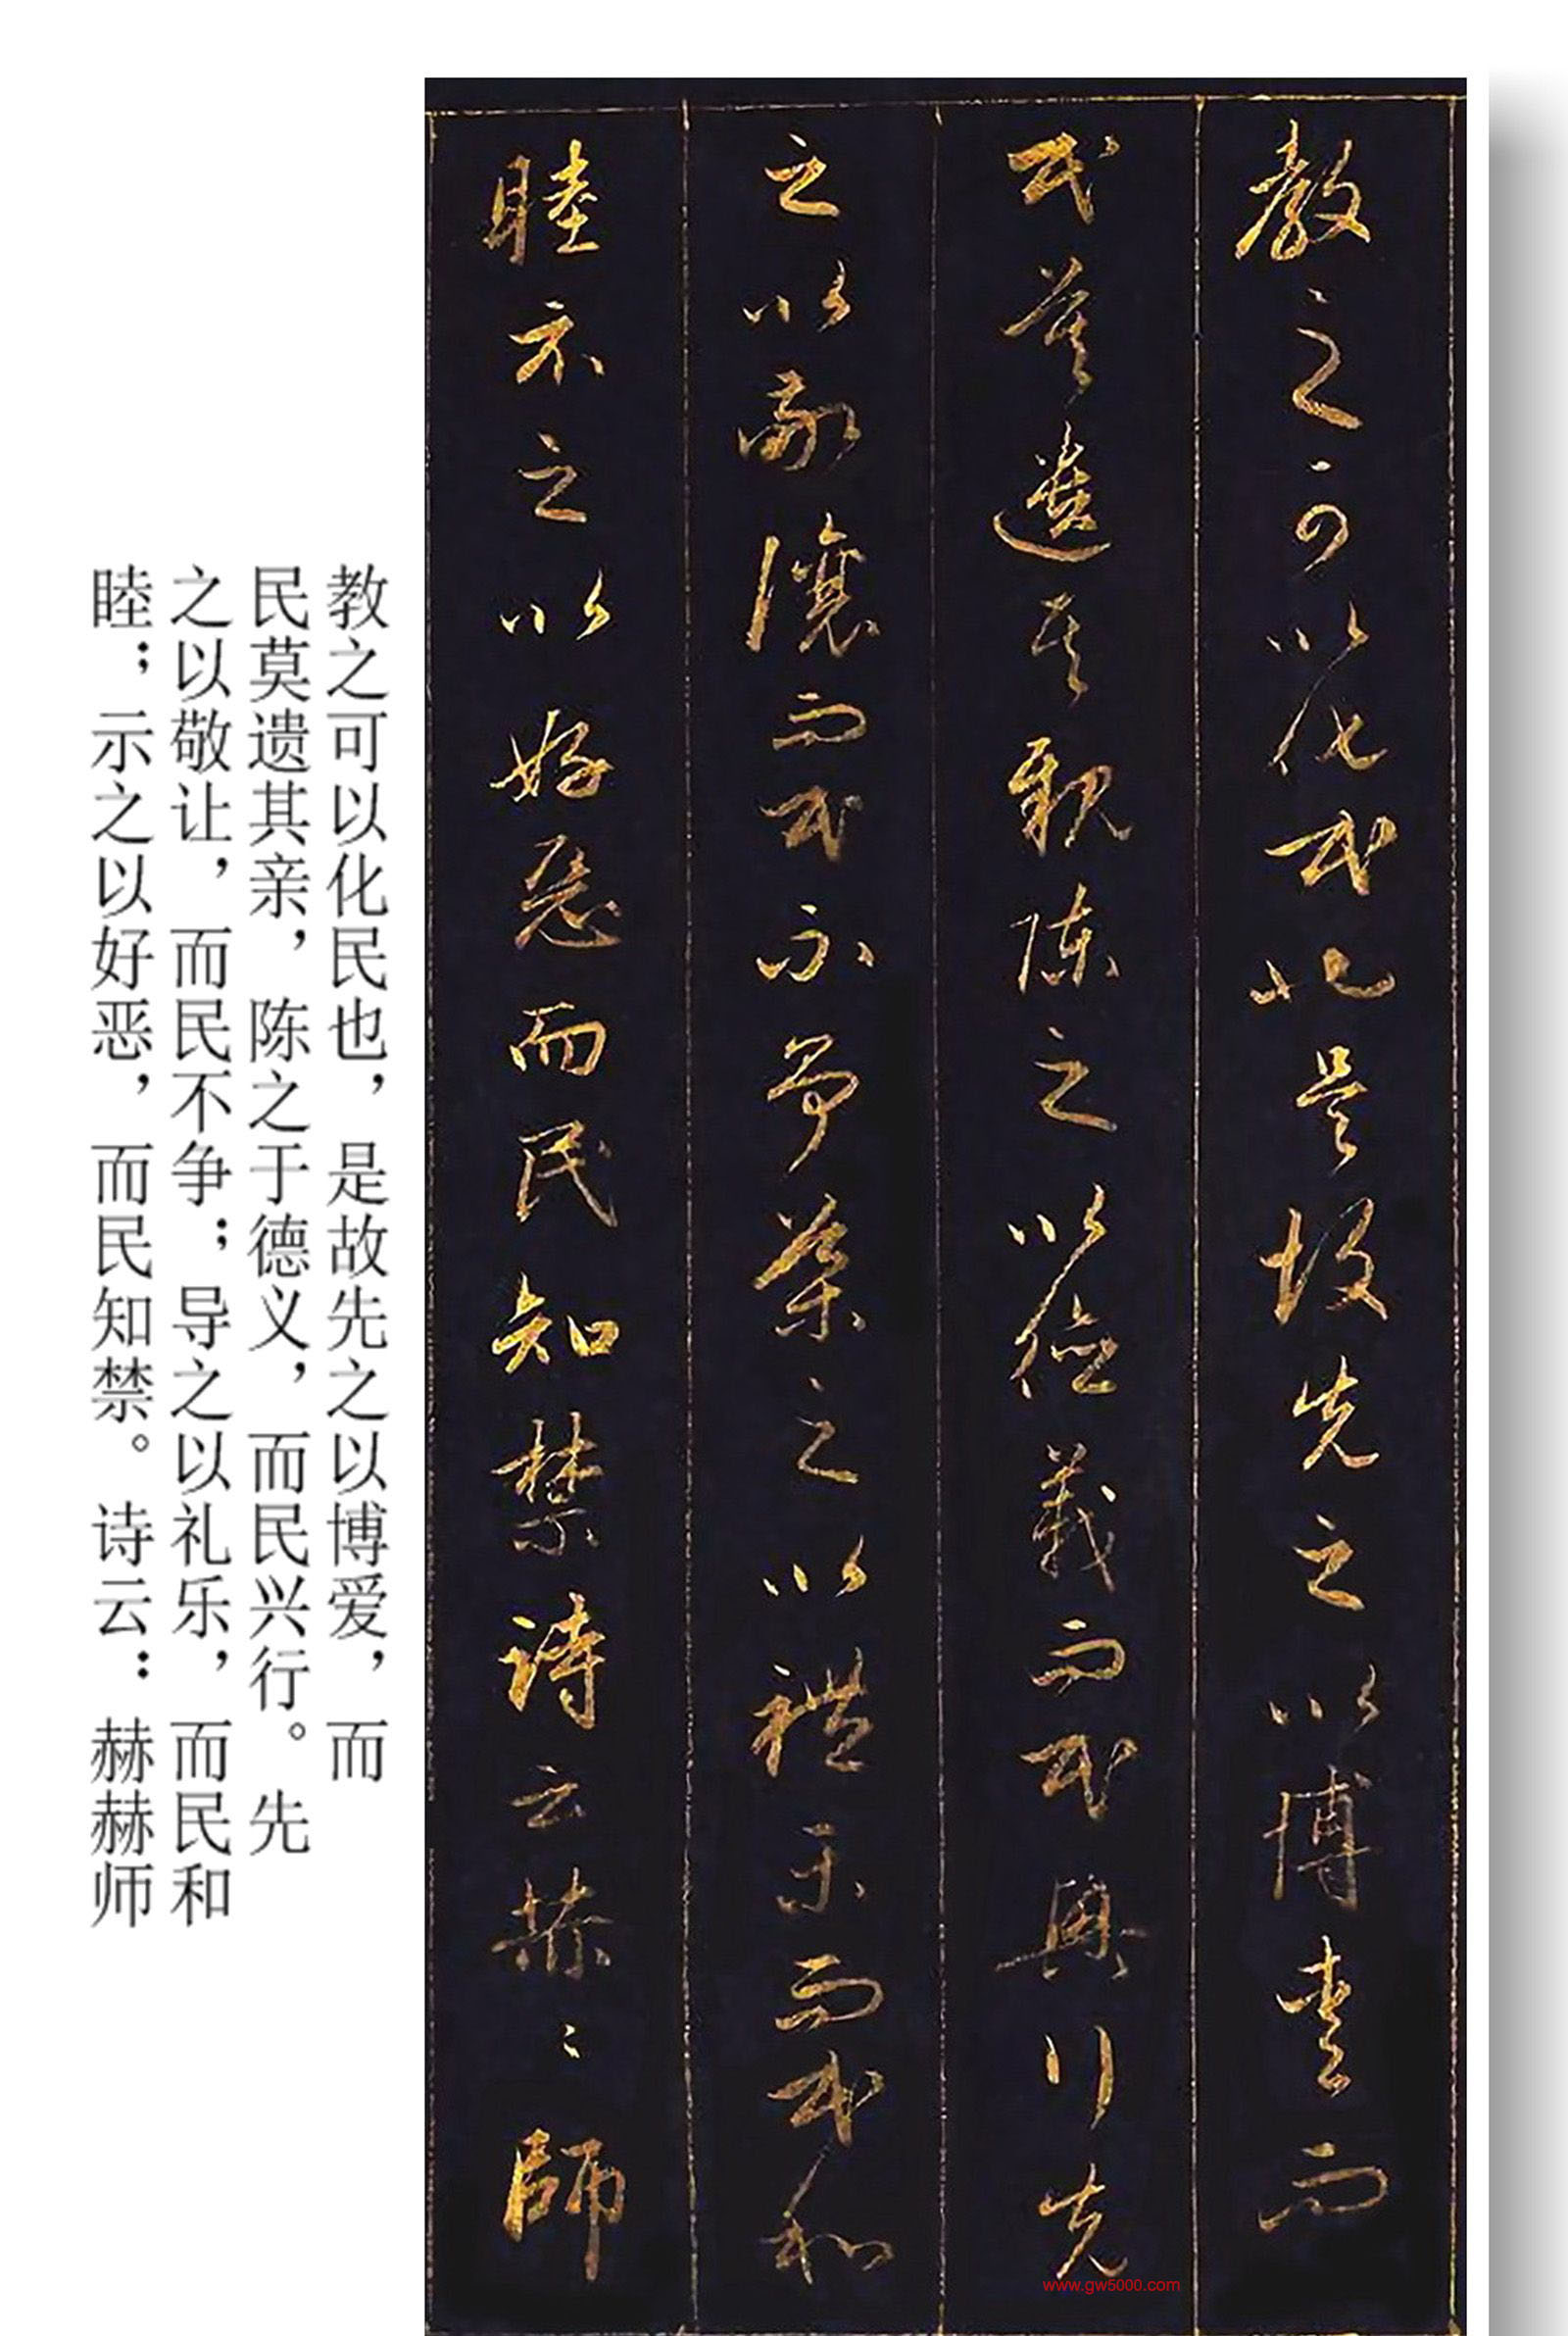 教之可以化民也是故先之以博愛而
民莫遺其親陳之以德義而民興行先
之以敬讓而民不爭導之以禮樂而民和
睦示之以好惡而民知禁詩云赫〻師
教之可以化民也，是故先之以博爱，而
民莫遗其亲，陈之于德义，而民兴行。先
之以敬让，而民不争；导之以礼乐，而民和
睦；示之以好恶，而民知禁。诗云：赫赫师
www.gw5000.com